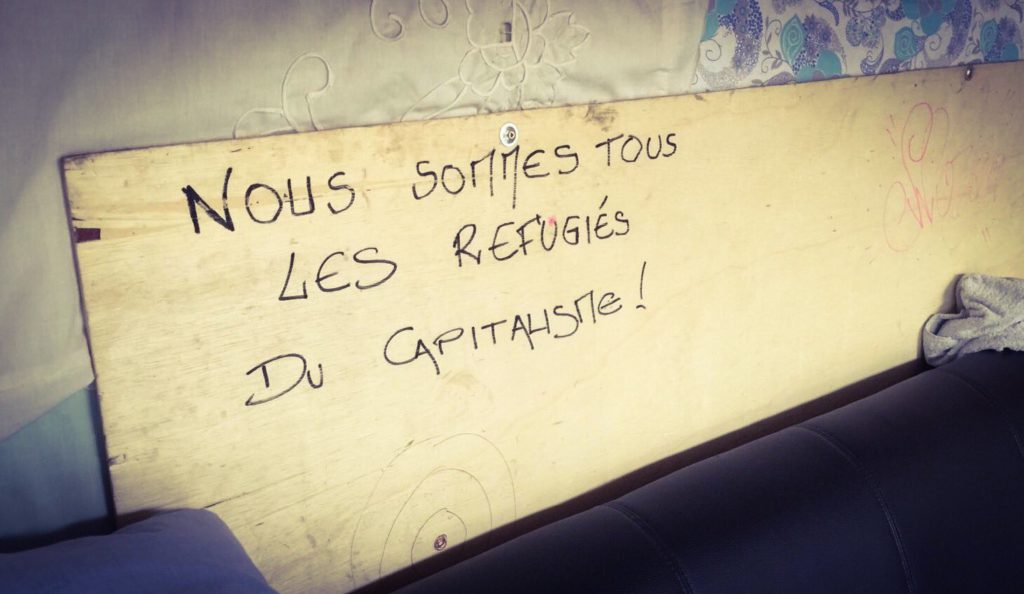 NOUS SOMMES TOUS
LES REFUGIÉS
DU CAPITALISME !